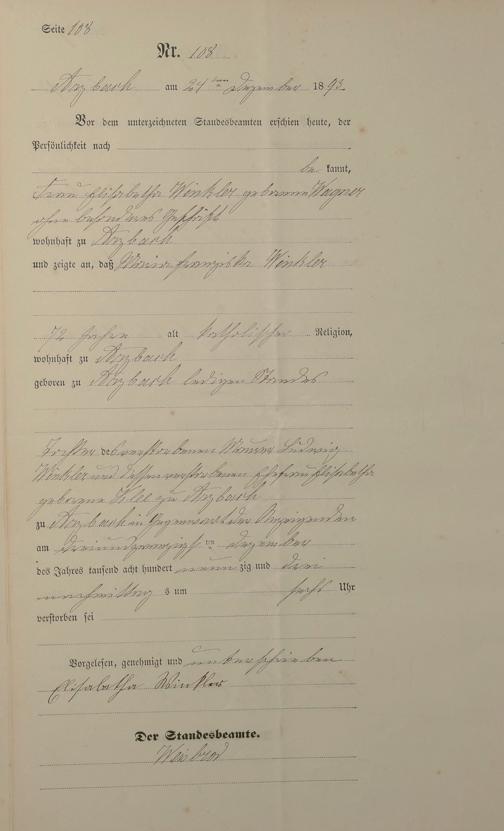 Seite 108
Nr. 108
Arzbach am 24ten Dezember 1893.
Vor dem unterzeichneten Standesbeamten erschien heute, der
Persönlichkeit nach
be kannt,
Frau Elisabetha Winkler geborene Wagner
ohne besonderes Geschäft
wohnhaft zu Arzbach
und zeigte an, daß Maria Franziska Winkler
72 Jahre alt katholischer Religion,
wohnhaft zu Arzbach
geboren zu Arzbach ledigen Standes
Tochter des verstorbenen Maurer Ludwig
Winkler und dessen verstorbenen Ehefrau Elisabetha
geborene Klee zu Arzbach
zu Arzbach in Gegenwart der Anzeigenden
am dreiundzwanzigsten Dezember
des Jahres tausend acht hundert neun zig und drei
nachmittag s um sechs Uhr
verstorben sei
Vorgelesen, genehmigt und unterschrieben
Elisabetha Winkler
Der Standesbeamte.
Weisbrod